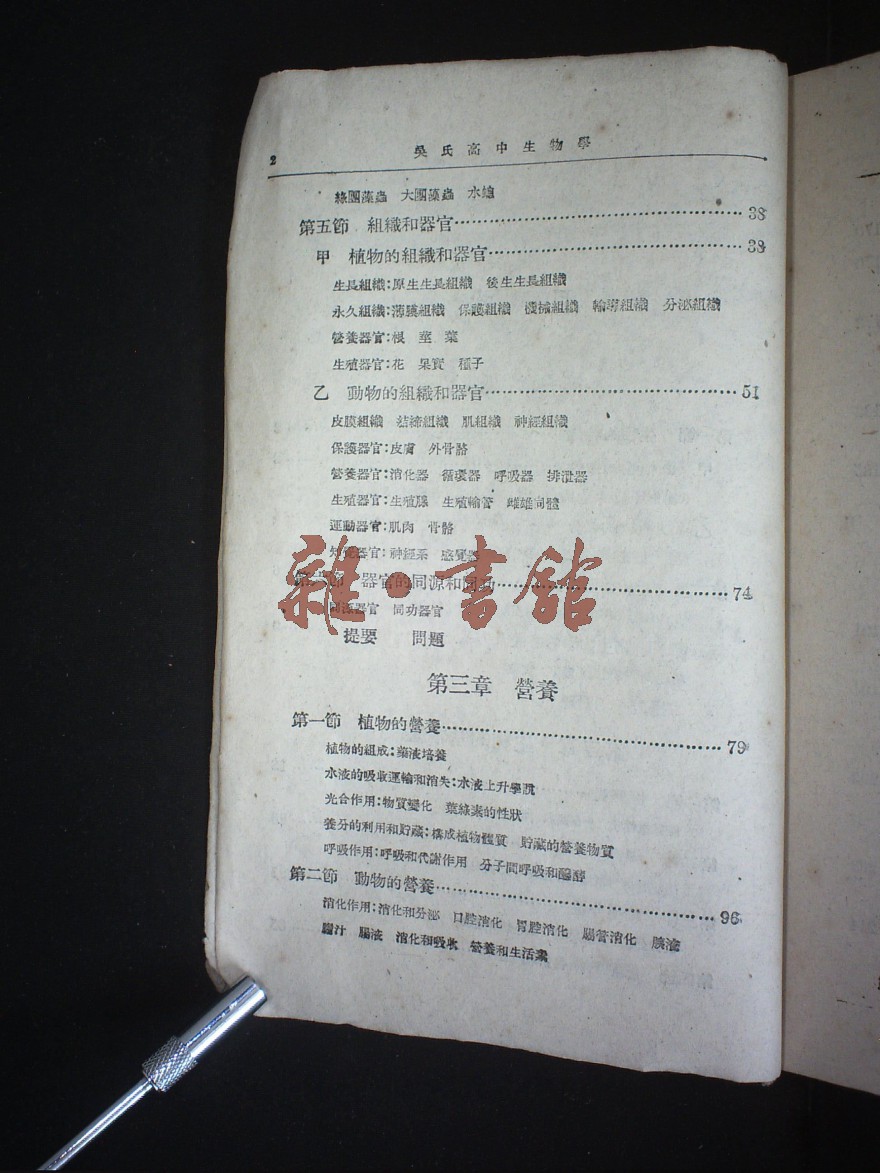 2 吳氏高中生物學
綠團藻蟲 大團藻蟲 水螅
第五節 組織和器官 38
甲 植物的組織和器官 38
生長組織:原生生長組織 後生生長組織
永久組織:薄膜組織 保護組織 機械組織 輸導組織 分泌組織
營養器官:根 莖 葉
生殖器官:花 果實 種子
乙 動物的組織和器官 51
皮膜組織 結締組織 肌組織 神經組織
保護器官:皮膚 外骨骼
營養器官:消化器 循環器 呼吸器 排泄器
生殖器官:生殖腺 生殖輸管 雌雄同體
運動器官:肌肉 骨骼
知覺器官:神經系 感覺器
第六節 器官的同源和同功 74
同源器官 同功器官
雜·書館
提要 問題
第三章 營養
第一節 植物的營養 79
植物的組成:藥液培養
水液的吸收運輸和消失:水液上升學說
光合作用:物質變化 葉綠素的性狀
養分的利用和貯藏:構成植物體質 貯藏的營養物質
呼吸作用:呼吸和代謝作用 分子間呼吸和醱酵
第二節 動物的營養 96
消化作用:消化和分泌 口腔消化 胃腔消化 腸管消化 胰液
膽汁 腸液 消化和吸收 營養和生活素